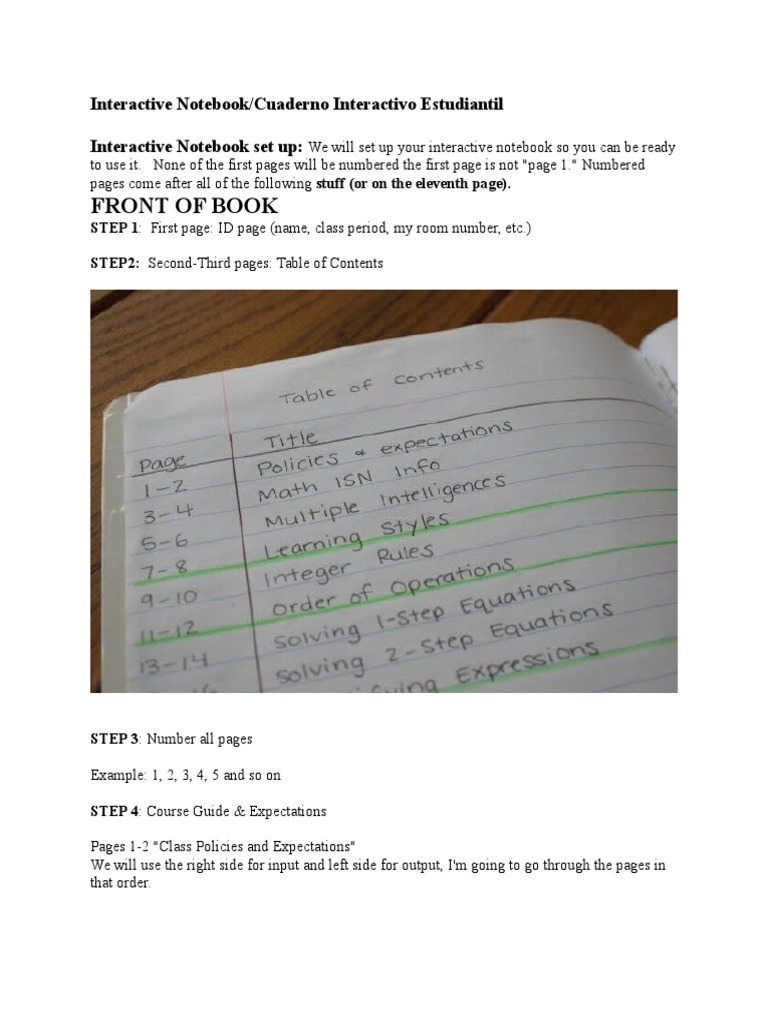 Interactive Notebook/Cuaderno Interactivo Estudiantil
Interactive Notebook set up: We will set up your interactive notebook so you can be ready
to use it. None of the first pages will be numbered the first page is not "page 1." Numbered
pages come after all of the following stuff (or on the eleventh page).
FRONT OF BOOK
STEP 1: First page: ID page (name, class period, my room number, etc.)
STEP2: Second-Third pages: Table of Contents
Table of Contents
Page Title
1-2 Policies & expectations
3-4 Math ISN Info
5-6 Multiple Intelligences
7-8 Learning Styles
9-10 Integer Rules
11-12 Order of Operations
13-14 Solving 1-Step Equations
Solving 2-Step Equations
Expressions
STEP 3: Number all pages
Example: 1, 2, 3, 4, 5 and so on
STEP 4: Course Guide & Expectations
Pages 1-2 "Class Policies and Expectations"
We will use the right side for input and left side for output, I'm going to go through the pages in
that order.